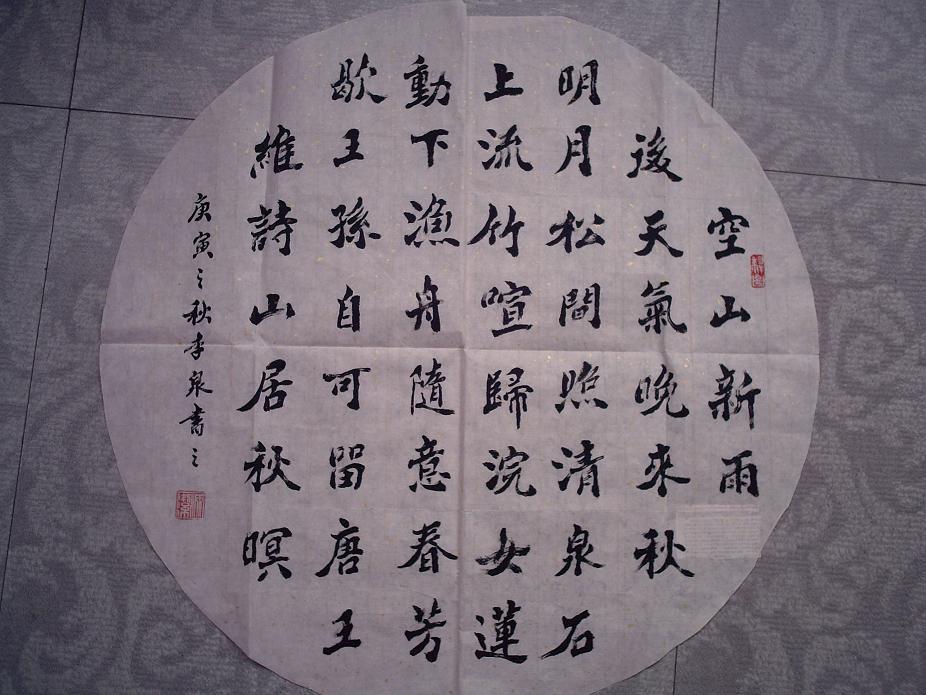 空山新雨
後天氣晚來秋
明月松間照清泉石
上流竹喧歸浣女蓮
動下漁舟隨意春芳
歇王孫自可留唐王
維詩山居秋暝
庚寅之秋李泉書之